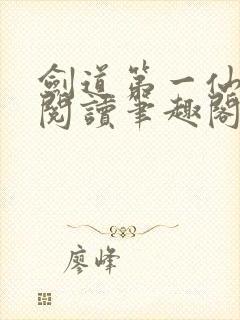 劍道第一仙
閱讀筆趣閣
廖峰